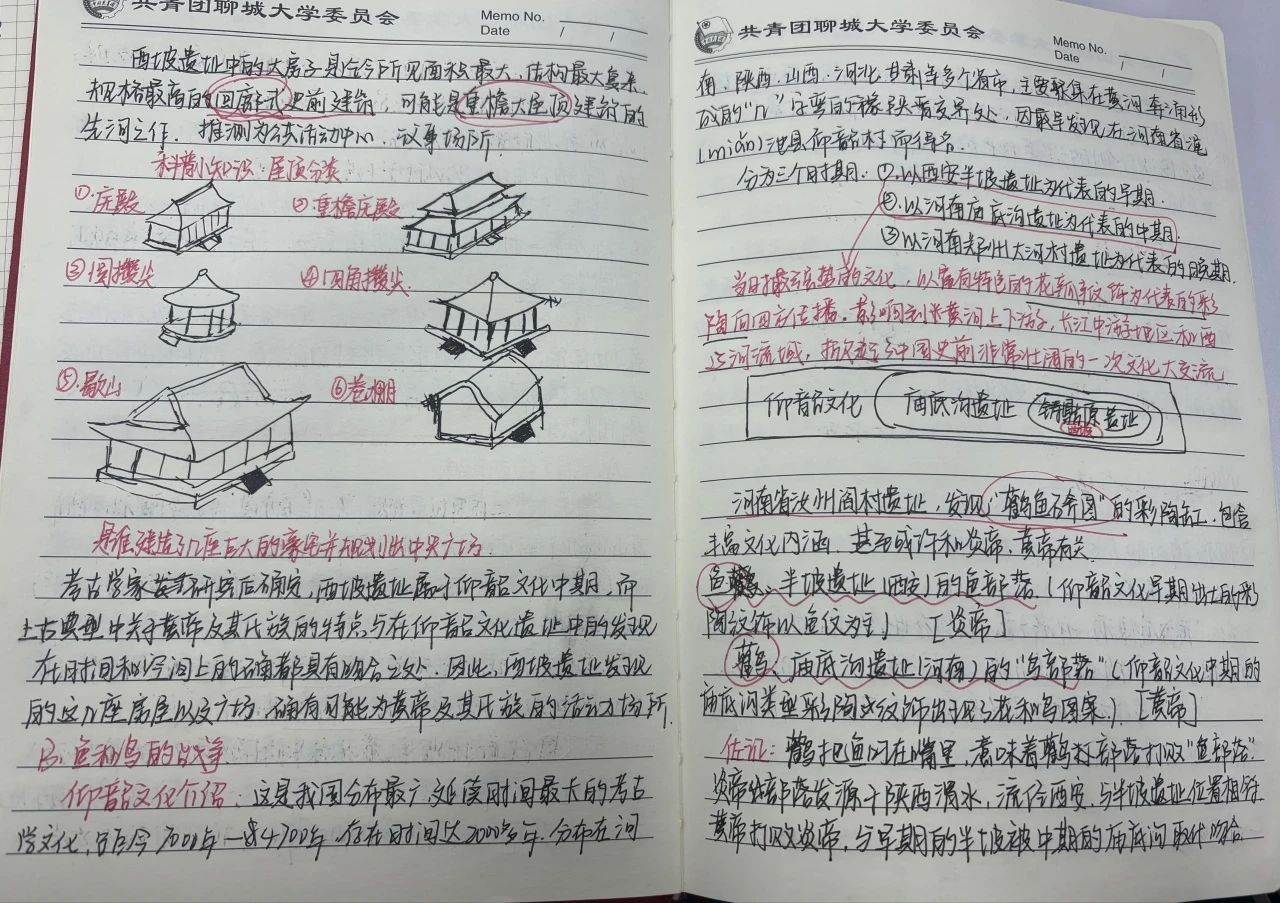 共青团聊城大学委员会
Memo No.
Date / /
西坡遗址中的大房子是迄今所见面积最大,结构最复杂
规格最高的回廊式史前建筑 可能是重檐大屋顶建筑的
先河之作. 推测为公共活动中心、议事场所.
科普小知识: 屋顶分类
①.庑殿
②重檐庑殿
③圆攒尖
④四角攒尖
⑤.歇山
⑥卷棚
是谁建造了几座巨大的豪宅并规划出中央广场.
考古学家 研究后确定,西坡遗址属于仰韶文化中期,而
上古典型中关于黄帝及其氏族的特点与在仰韶文化遗址中的发现
在时间和空间上的确都具有吻合之处. 因此,西坡遗址发现
的这几座房屋以及广场.确有可能为黄帝及其氏族的活动场所.
B.鱼和鸟的战争
仰韶文化介绍: 这是我国分布最广.延续时间最长的考古
学文化,距今7000年—4700年.存在时间达2000多年.分布在河
共青团聊城大学委员会
Memo No.
Date / /
南、陕西、山西、河北、甘肃等多个省市,主要聚集在黄河奔涌形
成的“几”字弯 豫陕晋交界处,因最早发现在河南省渑
(miǎn)池县仰韶村而得名.
分为三个时期: ①.以西安半坡遗址为代表的早期.
②.以河南庙底沟遗址为代表的中期.
③以河南郑州大河村遗址为代表的晚期.
当时最强势的文化,以富有特色的花瓣纹 为代表的彩
陶向四方传播。影响到黄河上下游,长江中游地区和西
辽河流域,掀起了中国史前非常壮阔的一次文化大交流
仰韶文化 庙底沟遗址 铸鼎原遗址
西坡
河南省汝州阎村遗址,发现“鹳鱼石斧图”的彩陶缸.包含
丰富文化内涵.甚至或许和炎帝、黄帝有关
鱼 、半坡遗址(西安)的鱼部落.(仰韶文化早期出土的彩
陶纹饰以鱼纹为主) [炎帝]
鹳、庙底沟遗址(河南)的“鸟部落”(仰韶文化中期的
庙底沟类型彩陶纹饰出现了花和鸟图案.) [黄帝]
佐证: 鹳把鱼叼在嘴里,意味着鹳 部落打败“鱼部落”.
炎帝 部落发源于陕西渭水,流经西安.与半坡遗址位置相符
黄帝打败炎帝,与早期的半坡被中期的庙底沟取代吻合